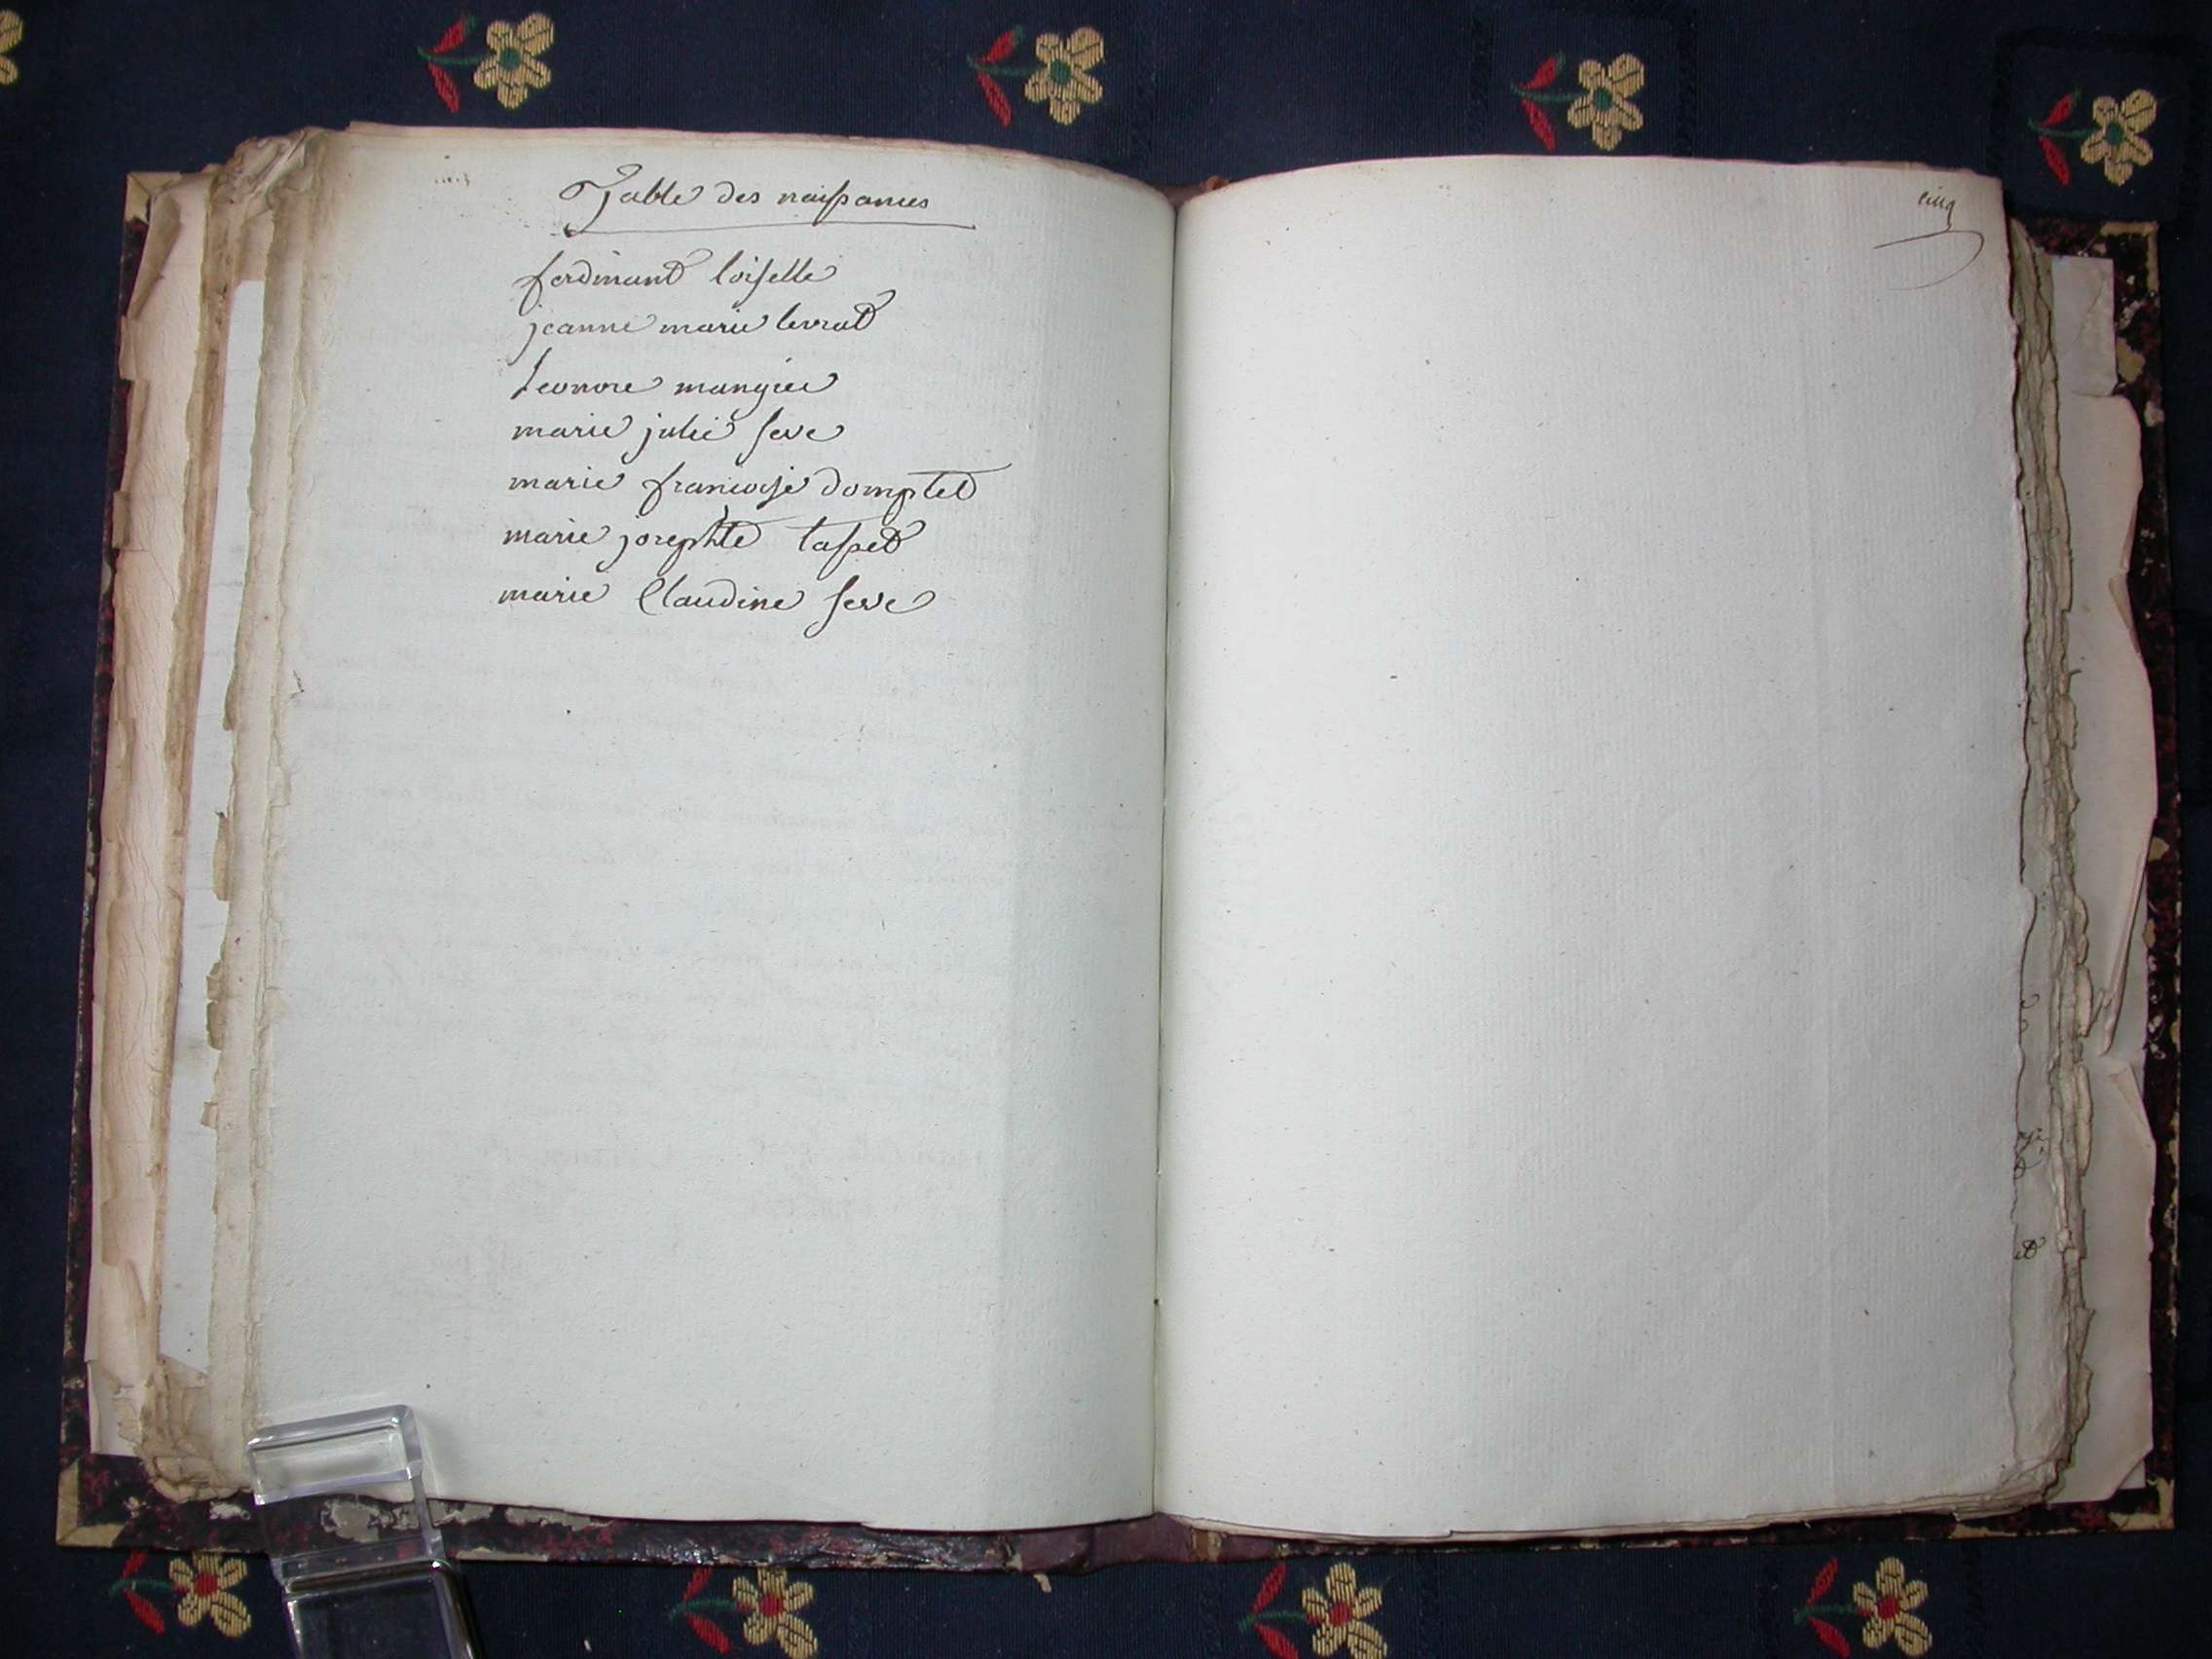 Table des naissances
ferdinant loiselle
jeanne marie levrat
leonore mangier
marie julie seve
marie francoise domptet
marie josephte tasset
marie Claudine seve
cinq
et